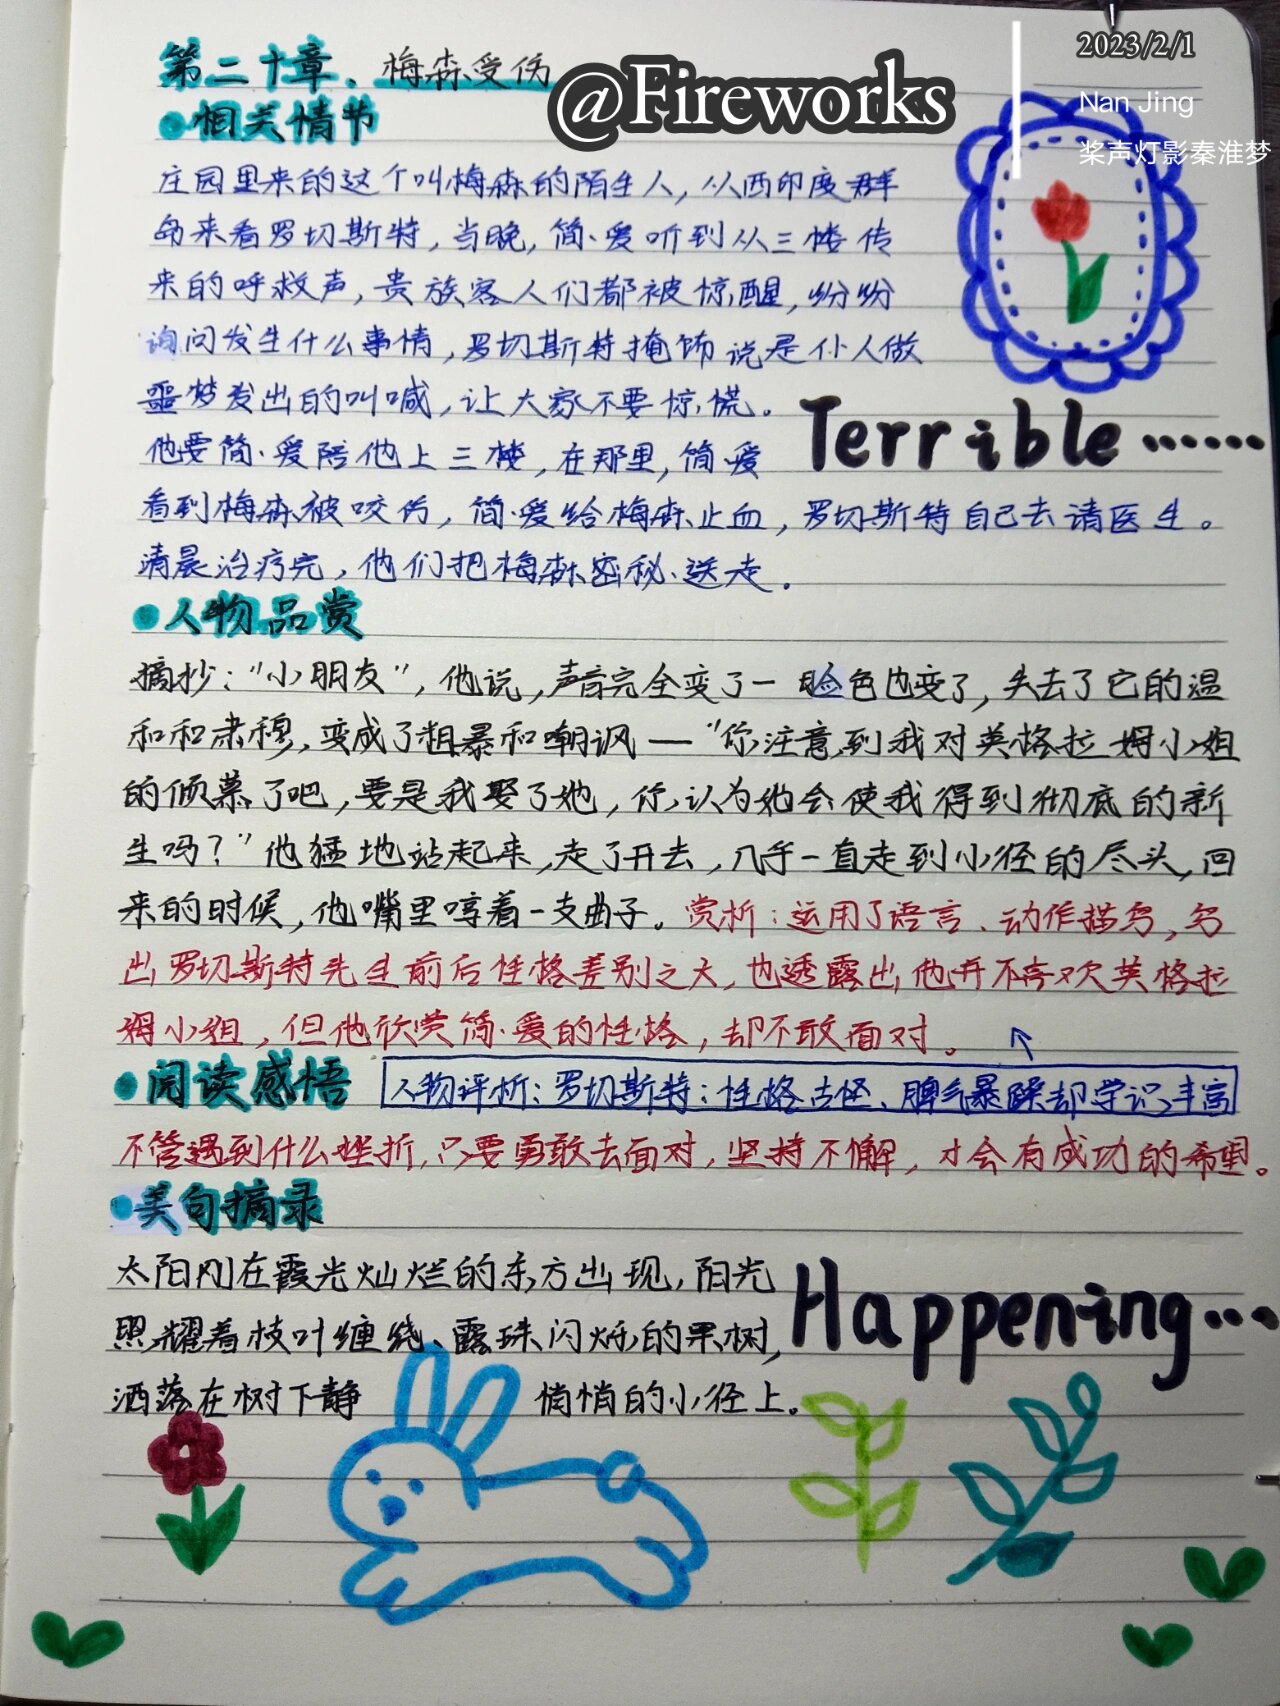 2023/2/1
Nan Jing
桨声灯影秦淮梦
@Fireworks
第二十章、梅森受伤
●相关情节
庄园里来的这个叫梅森的陌生人，从西印度群
岛来看罗切斯特，当晚，简·爱听到从三楼传
来的呼救声，贵族客人们都被惊醒，纷纷
询问发生什么事情，罗切斯特掩饰说是仆人做
噩梦发出的叫喊，让大家不要惊慌。
Terrible……
他要简·爱陪他上三楼，在那里，简·爱
看到梅森被咬伤，简·爱给梅森止血，罗切斯特自己去请医生。
清晨治疗完，他们把梅森秘密送走.
●人物品赏
摘抄："小朋友"，他说，声音完全变了一脸色也变了，失去了它的温
和和肃穆，变成了粗暴和嘲讽—"你注意到我对英格拉姆小姐
的倾慕了吧，要是我娶了她，你认为她会使我得到彻底的新
生吗？"他猛地站起来，走了开去，几乎一直走到小径的尽头，回
来的时候，他嘴里哼着一支曲子。赏析：运用了语言、动作描写，写
出罗切斯特先生前后性格差别之大，也透露出他并不喜欢英格拉
姆小姐，但他欣赏简·爱的性格，却不敢面对。
●阅读感悟 人物评析：罗切斯特：性格古怪、脾气暴躁却学识丰富
不管遇到什么挫折，只要勇敢去面对，坚持不懈，才会有成功的希望。
●美句摘录
太阳刚在霞光灿烂的东方出现，阳光
照耀着枝叶缠绕、露珠闪烁的果树，
洒落在树下静悄悄的小径上。
Happening…